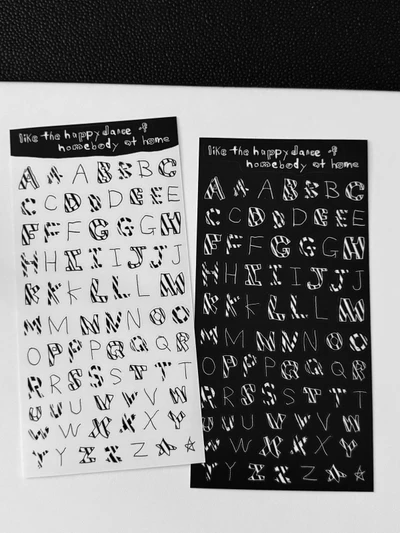 like the happy dance of
homebody at home
A A A B B B C
C C D D D E E E
F F F G G G H
H H I I I J J J
K K K L L L M
M M N N N O O
O P P P Q Q Q R
R R S S S T T T
U U U V V V W
W W X X X Y
Y Y Z Z Z
like the happy dance of
homebody at home
A A A B B B C
C C D D D E E E
F F F G G G H
H H I I I J J J
K K K L L L M
M M N N N O O
O P P P Q Q Q R
R R S S S T T T
U U U V V V W
W W X X X Y
Y Y Z Z Z